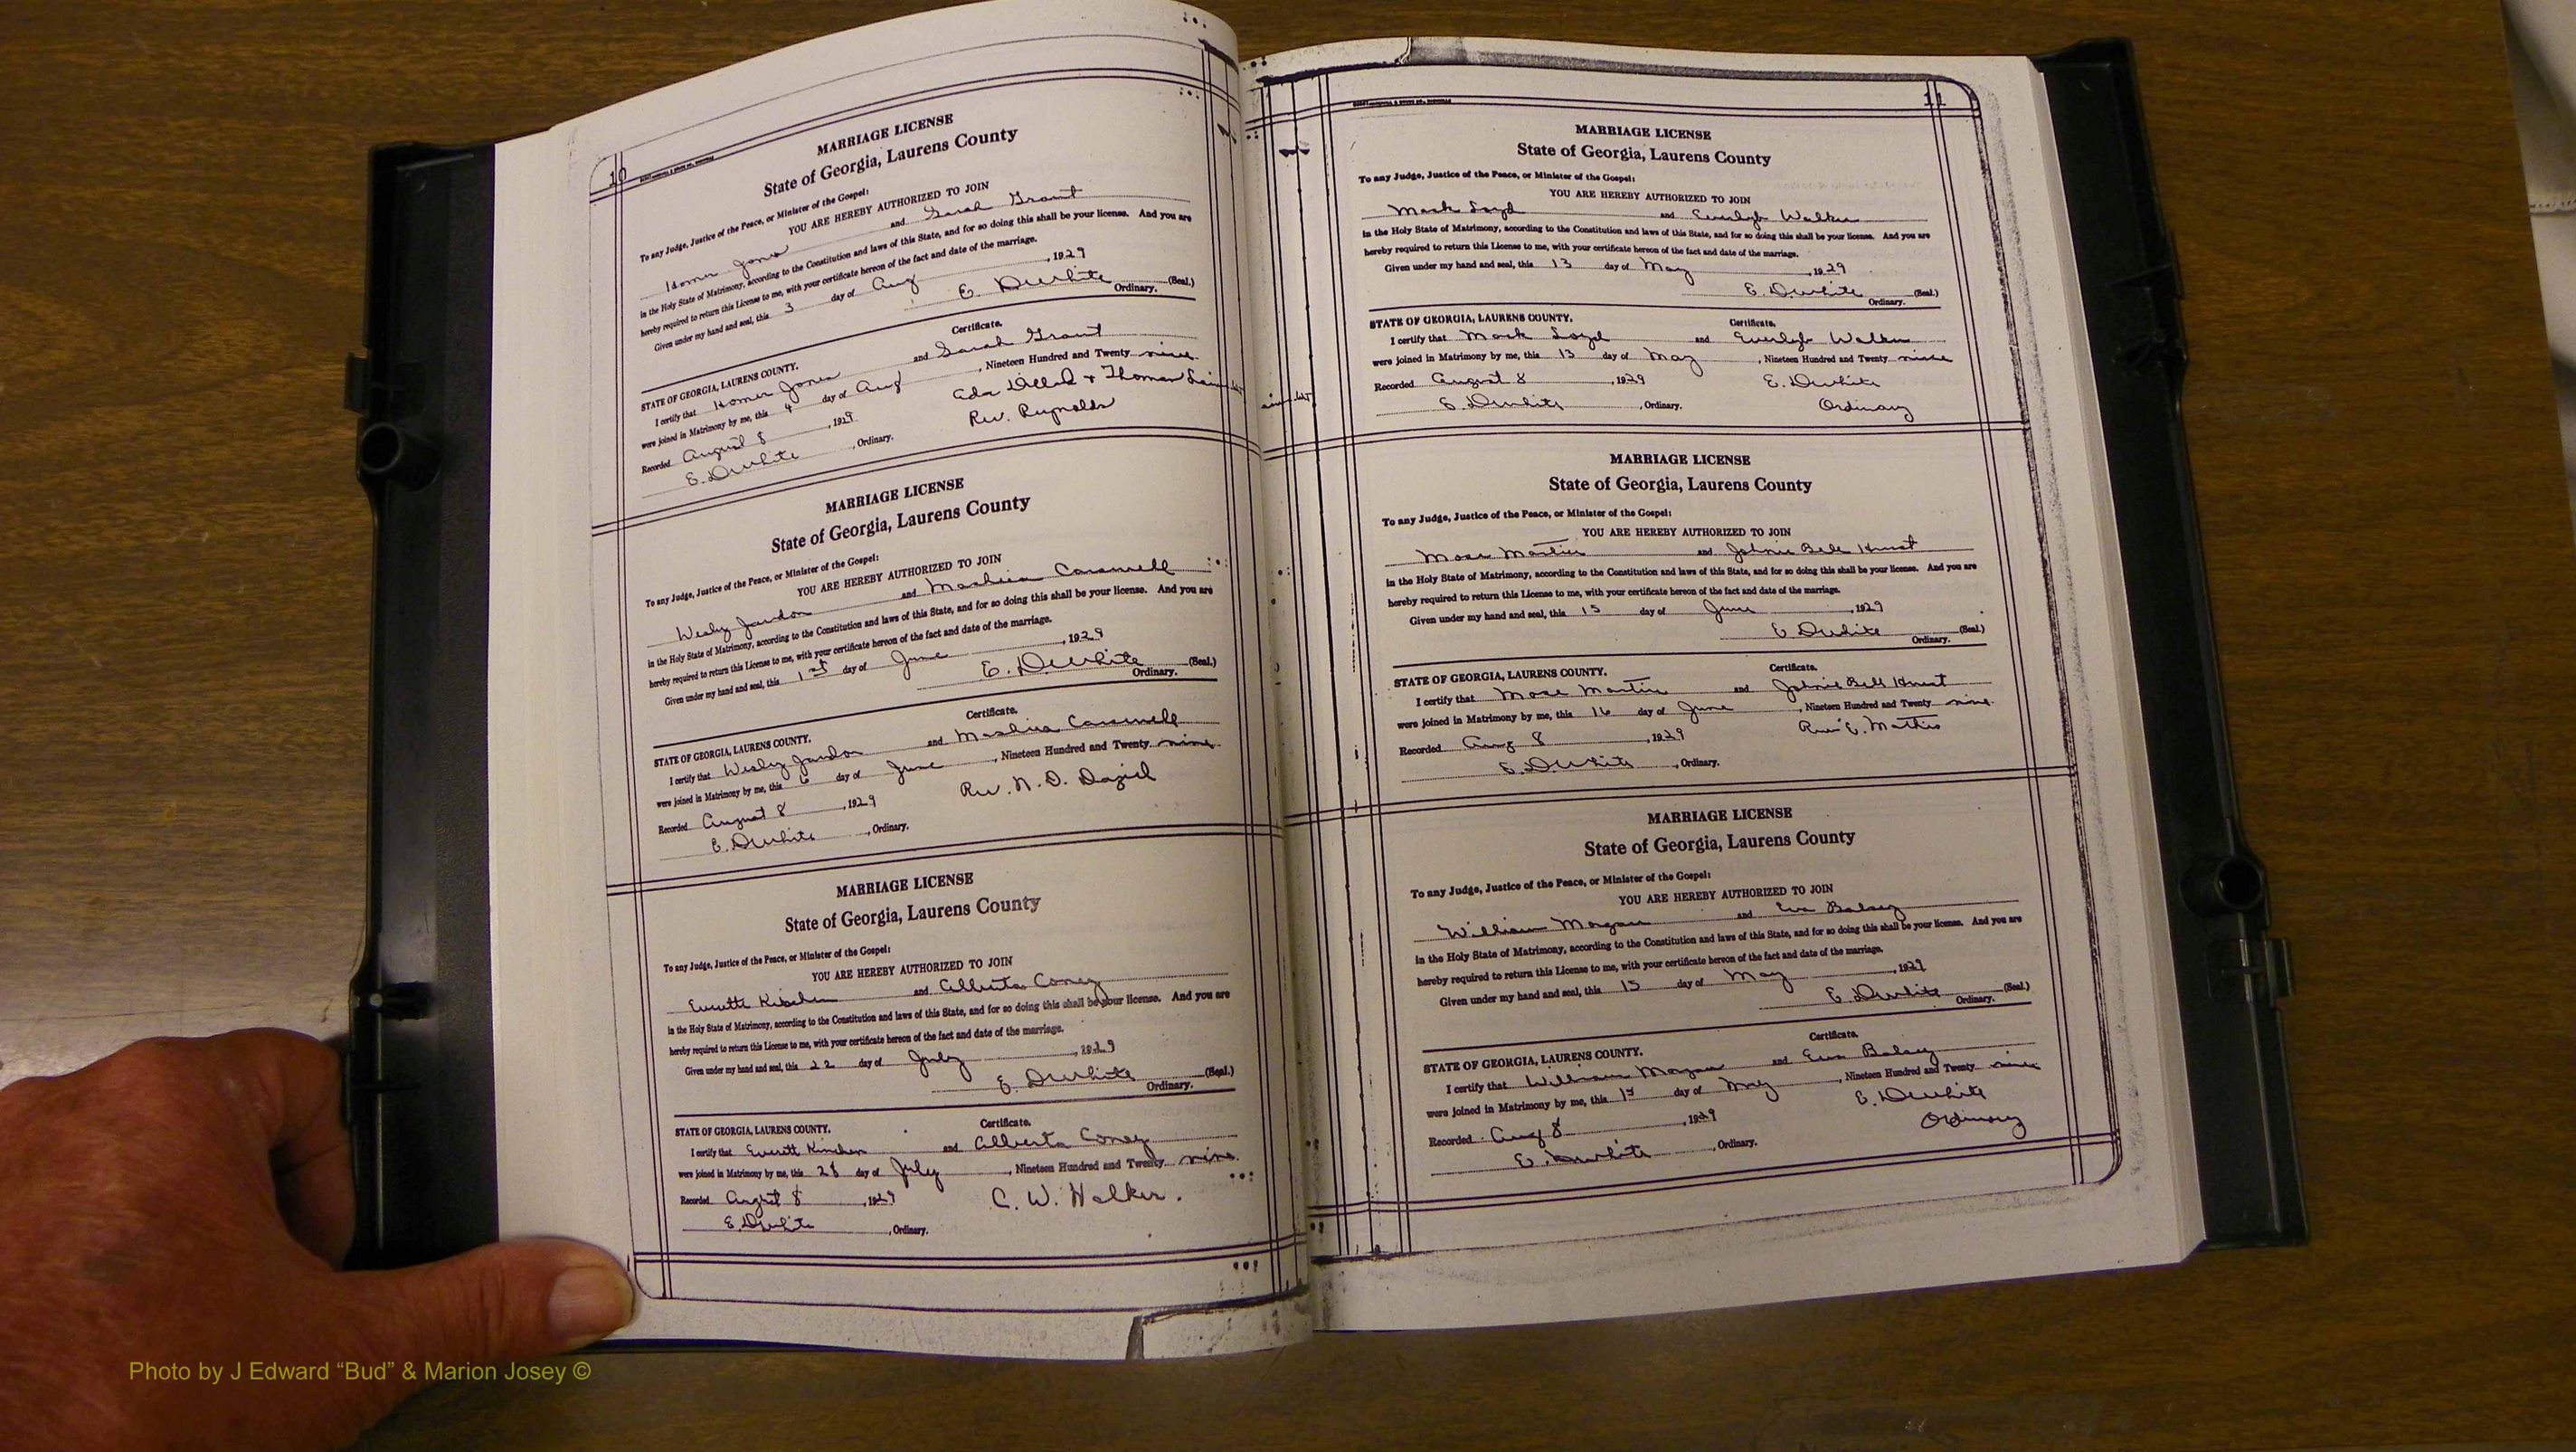 10
MARRIAGE LICENSE
State of Georgia, Laurens County
To any Judge, Justice of the Peace, or Minister of the Gospel:
YOU ARE HEREBY AUTHORIZED TO JOIN
Homer Jones and Sarah Grant
in the Holy State of Matrimony, according to the Constitution and laws of this State, and for so doing this shall be your license. And you are
hereby required to return this License to me, with your certificate hereon of the fact and date of the marriage.
Given under my hand and seal, this 3 day of Aug, 1929
E. D. White (Seal.)
Ordinary.
STATE OF GEORGIA, LAURENS COUNTY. Certificate.
I certify that Homer Jones and Sarah Grant
were joined in Matrimony by me, this 4 day of Aug, Nineteen Hundred and Twenty nine
Recorded August 8, 1929 Ada Dillard + Thomas
E. D. White, Ordinary. Rev. Reynolds
MARRIAGE LICENSE
State of Georgia, Laurens County
To any Judge, Justice of the Peace, or Minister of the Gospel:
YOU ARE HEREBY AUTHORIZED TO JOIN
Wesley and
in the Holy State of Matrimony, according to the Constitution and laws of this State, and for so doing this shall be your license. And you are
hereby required to return this License to me, with your certificate hereon of the fact and date of the marriage.
Given under my hand and seal, this 1st day of June, 1929
E. D. White (Seal.)
Ordinary.
STATE OF GEORGIA, LAURENS COUNTY. Certificate.
I certify that Wesley and
were joined in Matrimony by me, this 6 day of June, Nineteen Hundred and Twenty nine
Recorded August 8, 1929 Rev. N. D.
E. D. White, Ordinary.
MARRIAGE LICENSE
State of Georgia, Laurens County
To any Judge, Justice of the Peace, or Minister of the Gospel:
YOU ARE HEREBY AUTHORIZED TO JOIN
Everette and Alberta Coney
in the Holy State of Matrimony, according to the Constitution and laws of this State, and for so doing this shall be your license. And you are
hereby required to return this License to me, with your certificate hereon of the fact and date of the marriage.
Given under my hand and seal, this 22 day of July, 1929
E. D. White (Seal.)
Ordinary.
STATE OF GEORGIA, LAURENS COUNTY. Certificate.
I certify that Everett Kinchen and Alberta Coney
were joined in Matrimony by me, this 28 day of July, Nineteen Hundred and Twenty nine.
Recorded August 8, 1929 C. W. Walker.
E. D. White, Ordinary.
11
MARRIAGE LICENSE
State of Georgia, Laurens County
To any Judge, Justice of the Peace, or Minister of the Gospel:
YOU ARE HEREBY AUTHORIZED TO JOIN
Mack Loyd and Everlyn Walker
in the Holy State of Matrimony, according to the Constitution and laws of this State, and for so doing this shall be your license. And you are
hereby required to return this License to me, with your certificate hereon of the fact and date of the marriage.
Given under my hand and seal, this 13 day of May, 1929
E. D. White (Seal.)
Ordinary.
STATE OF GEORGIA, LAURENS COUNTY. Certificate.
I certify that Mack Loyd and Everlyn Walker
were joined in Matrimony by me, this 13 day of May, Nineteen Hundred and Twenty nine
Recorded August 8, 1929 E. D. White
E. D. White, Ordinary. Ordinary
MARRIAGE LICENSE
State of Georgia, Laurens County
To any Judge, Justice of the Peace, or Minister of the Gospel:
YOU ARE HEREBY AUTHORIZED TO JOIN
Mose Martin and Johnie Bell Hurst
in the Holy State of Matrimony, according to the Constitution and laws of this State, and for so doing this shall be your license. And you are
hereby required to return this License to me, with your certificate hereon of the fact and date of the marriage.
Given under my hand and seal, this 15 day of June, 1929
E. D. White (Seal.)
Ordinary.
STATE OF GEORGIA, LAURENS COUNTY. Certificate.
I certify that Mose Martin and Johnie Bell Hurst
were joined in Matrimony by me, this 16 day of June, Nineteen Hundred and Twenty nine.
Recorded Aug 8, 1929 Rev. E. Mathis
E. D. White, Ordinary.
MARRIAGE LICENSE
State of Georgia, Laurens County
To any Judge, Justice of the Peace, or Minister of the Gospel:
YOU ARE HEREBY AUTHORIZED TO JOIN
William Morgan and Eva
in the Holy State of Matrimony, according to the Constitution and laws of this State, and for so doing this shall be your license. And you are
hereby required to return this License to me, with your certificate hereon of the fact and date of the marriage.
Given under my hand and seal, this 15 day of May, 1929
E. D. White (Seal.)
Ordinary.
STATE OF GEORGIA, LAURENS COUNTY. Certificate.
I certify that William Morgan and Eva
were joined in Matrimony by me, this day of May, Nineteen Hundred and Twenty nine
Recorded Aug 8, 1929 E. D. White
E. D. White, Ordinary. Ordinary
Photo by J Edward “Bud” & Marion Josey ©